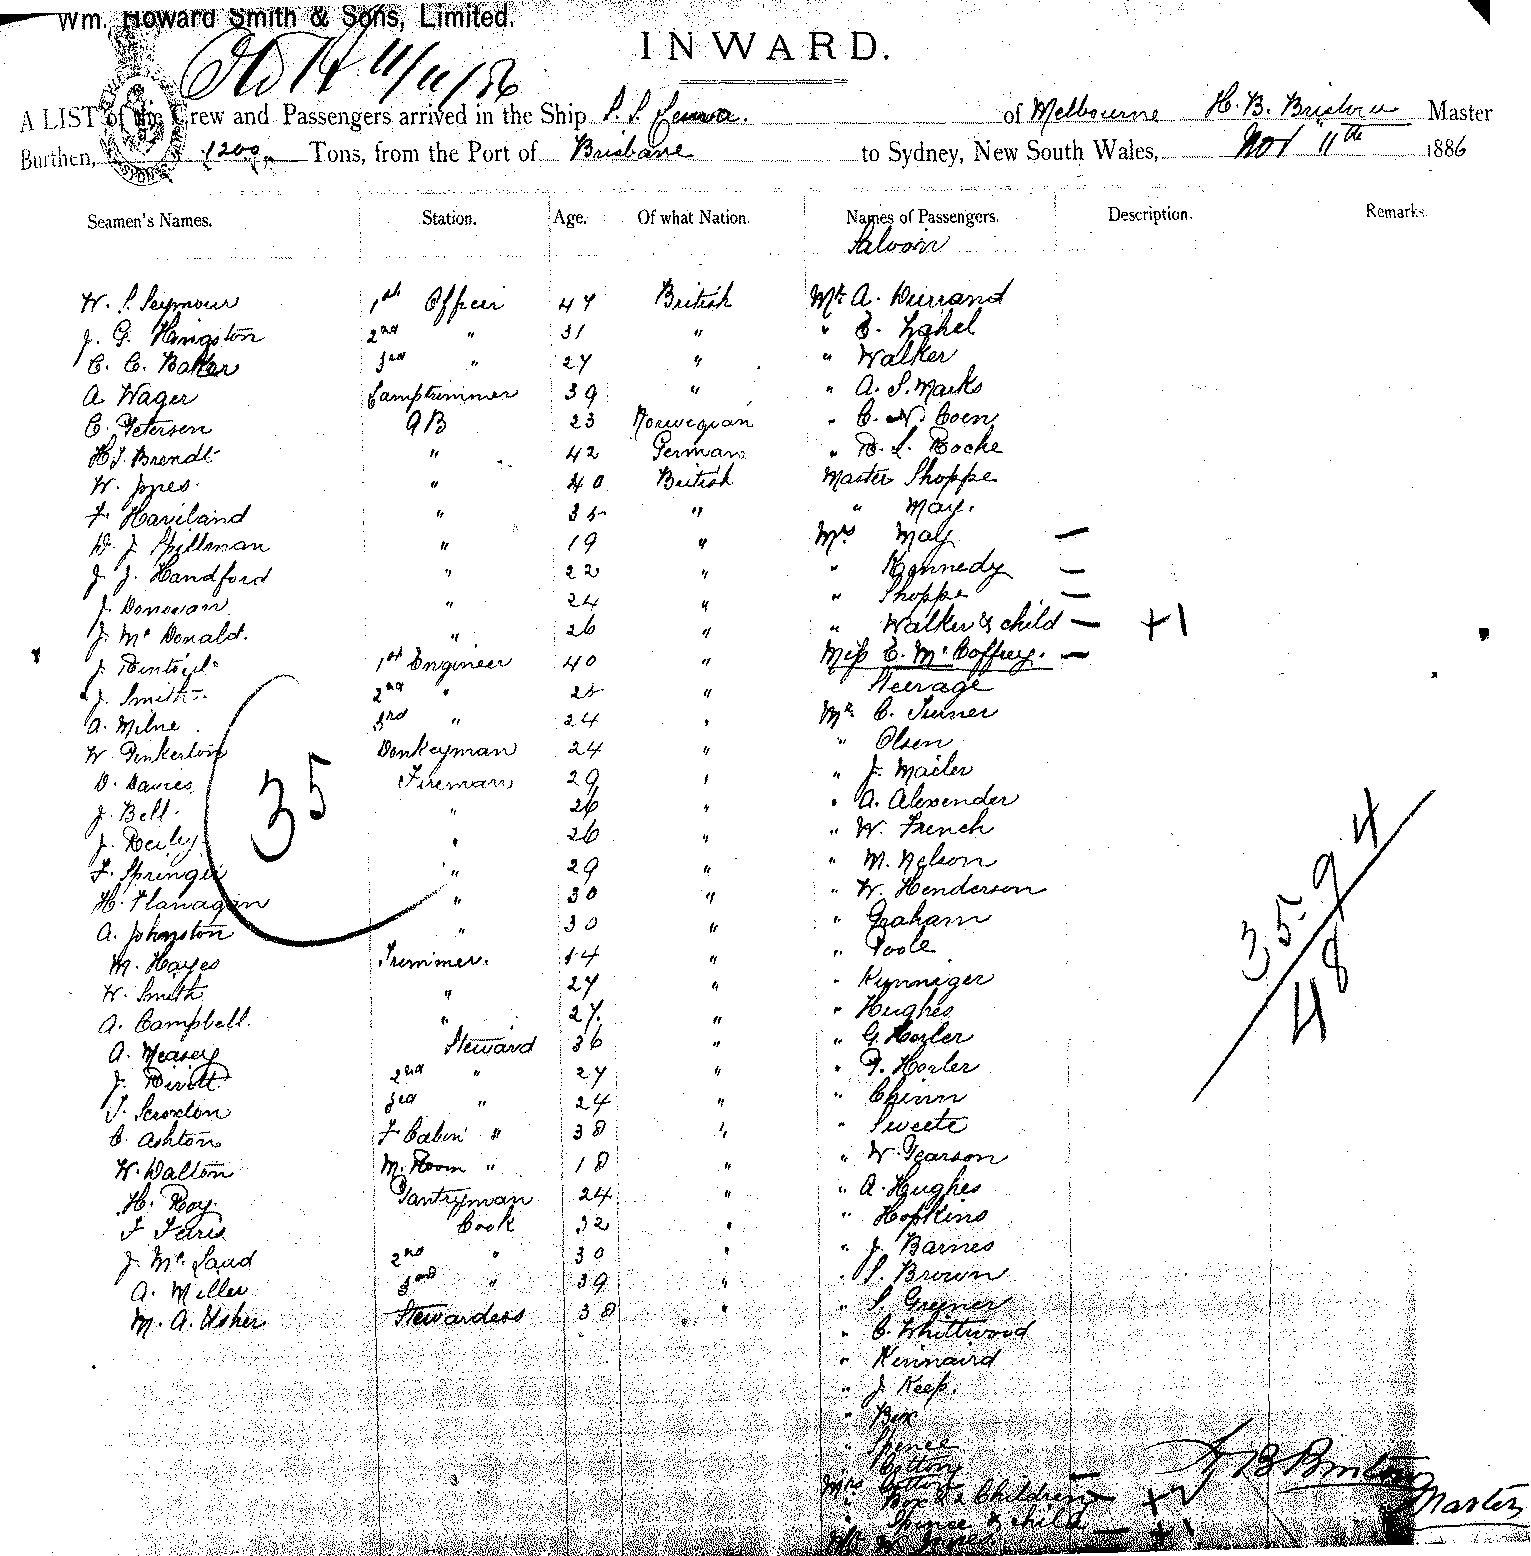 Wm. Howard Smith & Sons, Limited.
INWARD.
11/11/86
A LIST of the Crew and Passengers arrived in the Ship S.S. of Melbourne H. B. Bristow Master
Burthen, 1200 Tons, from the Port of Brisbane to Sydney, New South Wales, Nov 11th 1886
Seamen's Names. Station. Age. Of what Nation. Names of Passengers. Description. Remarks.
Saloon
W. S. Seymour 1st Officer 47 British Mr. A. Durrand
J. G. Kingston 2nd " 31 " " E. Zahel
C. C. Baker 3rd " 27 " " Walker
A Wager Lamptrimmer 39 " " A. S. Marks
C. Petersen AB 23 Norwegian " C. N. Coen
H J. Brendt " 42 German " D. L. Roche
W. Jones " 40 British Master Shoppe
F. Haviland " " " May.
W. J. Spillman " 19 " Mrs May —
J. J. Handford " 22 " " Kennedy —
J. Donovan " 24 " " Shoppe —
J. McDonald. " 26 " " Walker & child — +1
J. 1st Engineer 40 " Miss E. McCoffrey. —
J. Smith 2nd " " Steerage
A. Milne 3rd " 24 " Mr. C. Turner
W Pinkerton Donkeyman 24 " " Olsen
D. Davies Fireman 29 " " J. Mailer
J. Bell " 26 " " A. Alexender
J. Reiley " 26 " " W. French
F. Springer " 29 " " M. Nelson
H. Flanagan " 30 " " W. Henderson
A. Johnston " 30 " " Graham
M. Hayes Trimmer. 44 " " Poole
W. Smith " 27 " " Kunniger
A. Campbell. " 27. " " Hughes
A. Measey Steward 36 " " G. Horler
J. 2nd " 27 " " F. Horler
T. Scroxton 3rd " 24 " " Chinn
C Ashton F Cabin " 38 " " Sweete
W. Dalton M. Room " 18 " " W. Pearson
H. Roy Pantryman 24 " " A. Hughes
F Faris Cook 32 " " Hopkins
J. 2nd " 30 " " J. Barnes
A. Miller 3rd " 39 " " S. Brown
M. A. Usher Stewardess 38 " " S. Greyner
" C. Whittwood
" Kennaird
" J. Keep.
" Box
" Spence
" Cotton
Mrs Cotton —
" Box & 2 Children — +2
" Spence & child — +1
35
35. 9 4
48
H B Bristow
Master